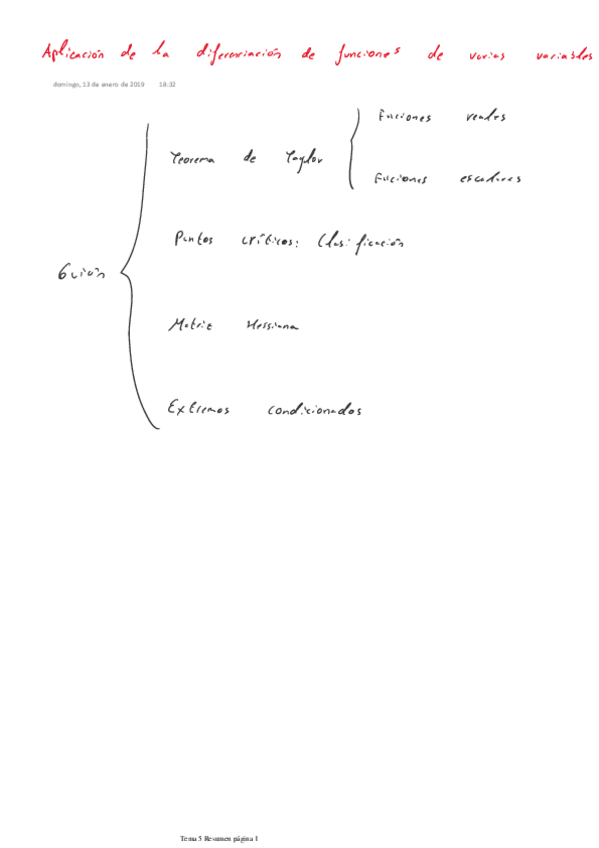 Aplicación de la diferenciación de funciones de varias variables
domingo, 13 de enero de 2019 18:32
Funciones reales
Teorema de Taylor
Funciones escalares
Puntos críticos: Clasificación
Guión
Matriz Hessiana
Extremos condicionados
Tema 5 Resumen página 1